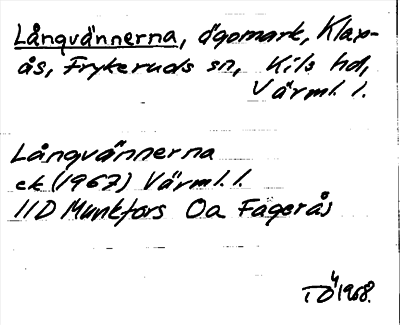 Långvännerna, ägomark, Klax-
ås, Frykeruds sn, Kils hd,
Värml. l.
Långvännerna
ek (1967) Värml. l.
11D Munkfors Oa Fagerås
TÖ 4 1968.